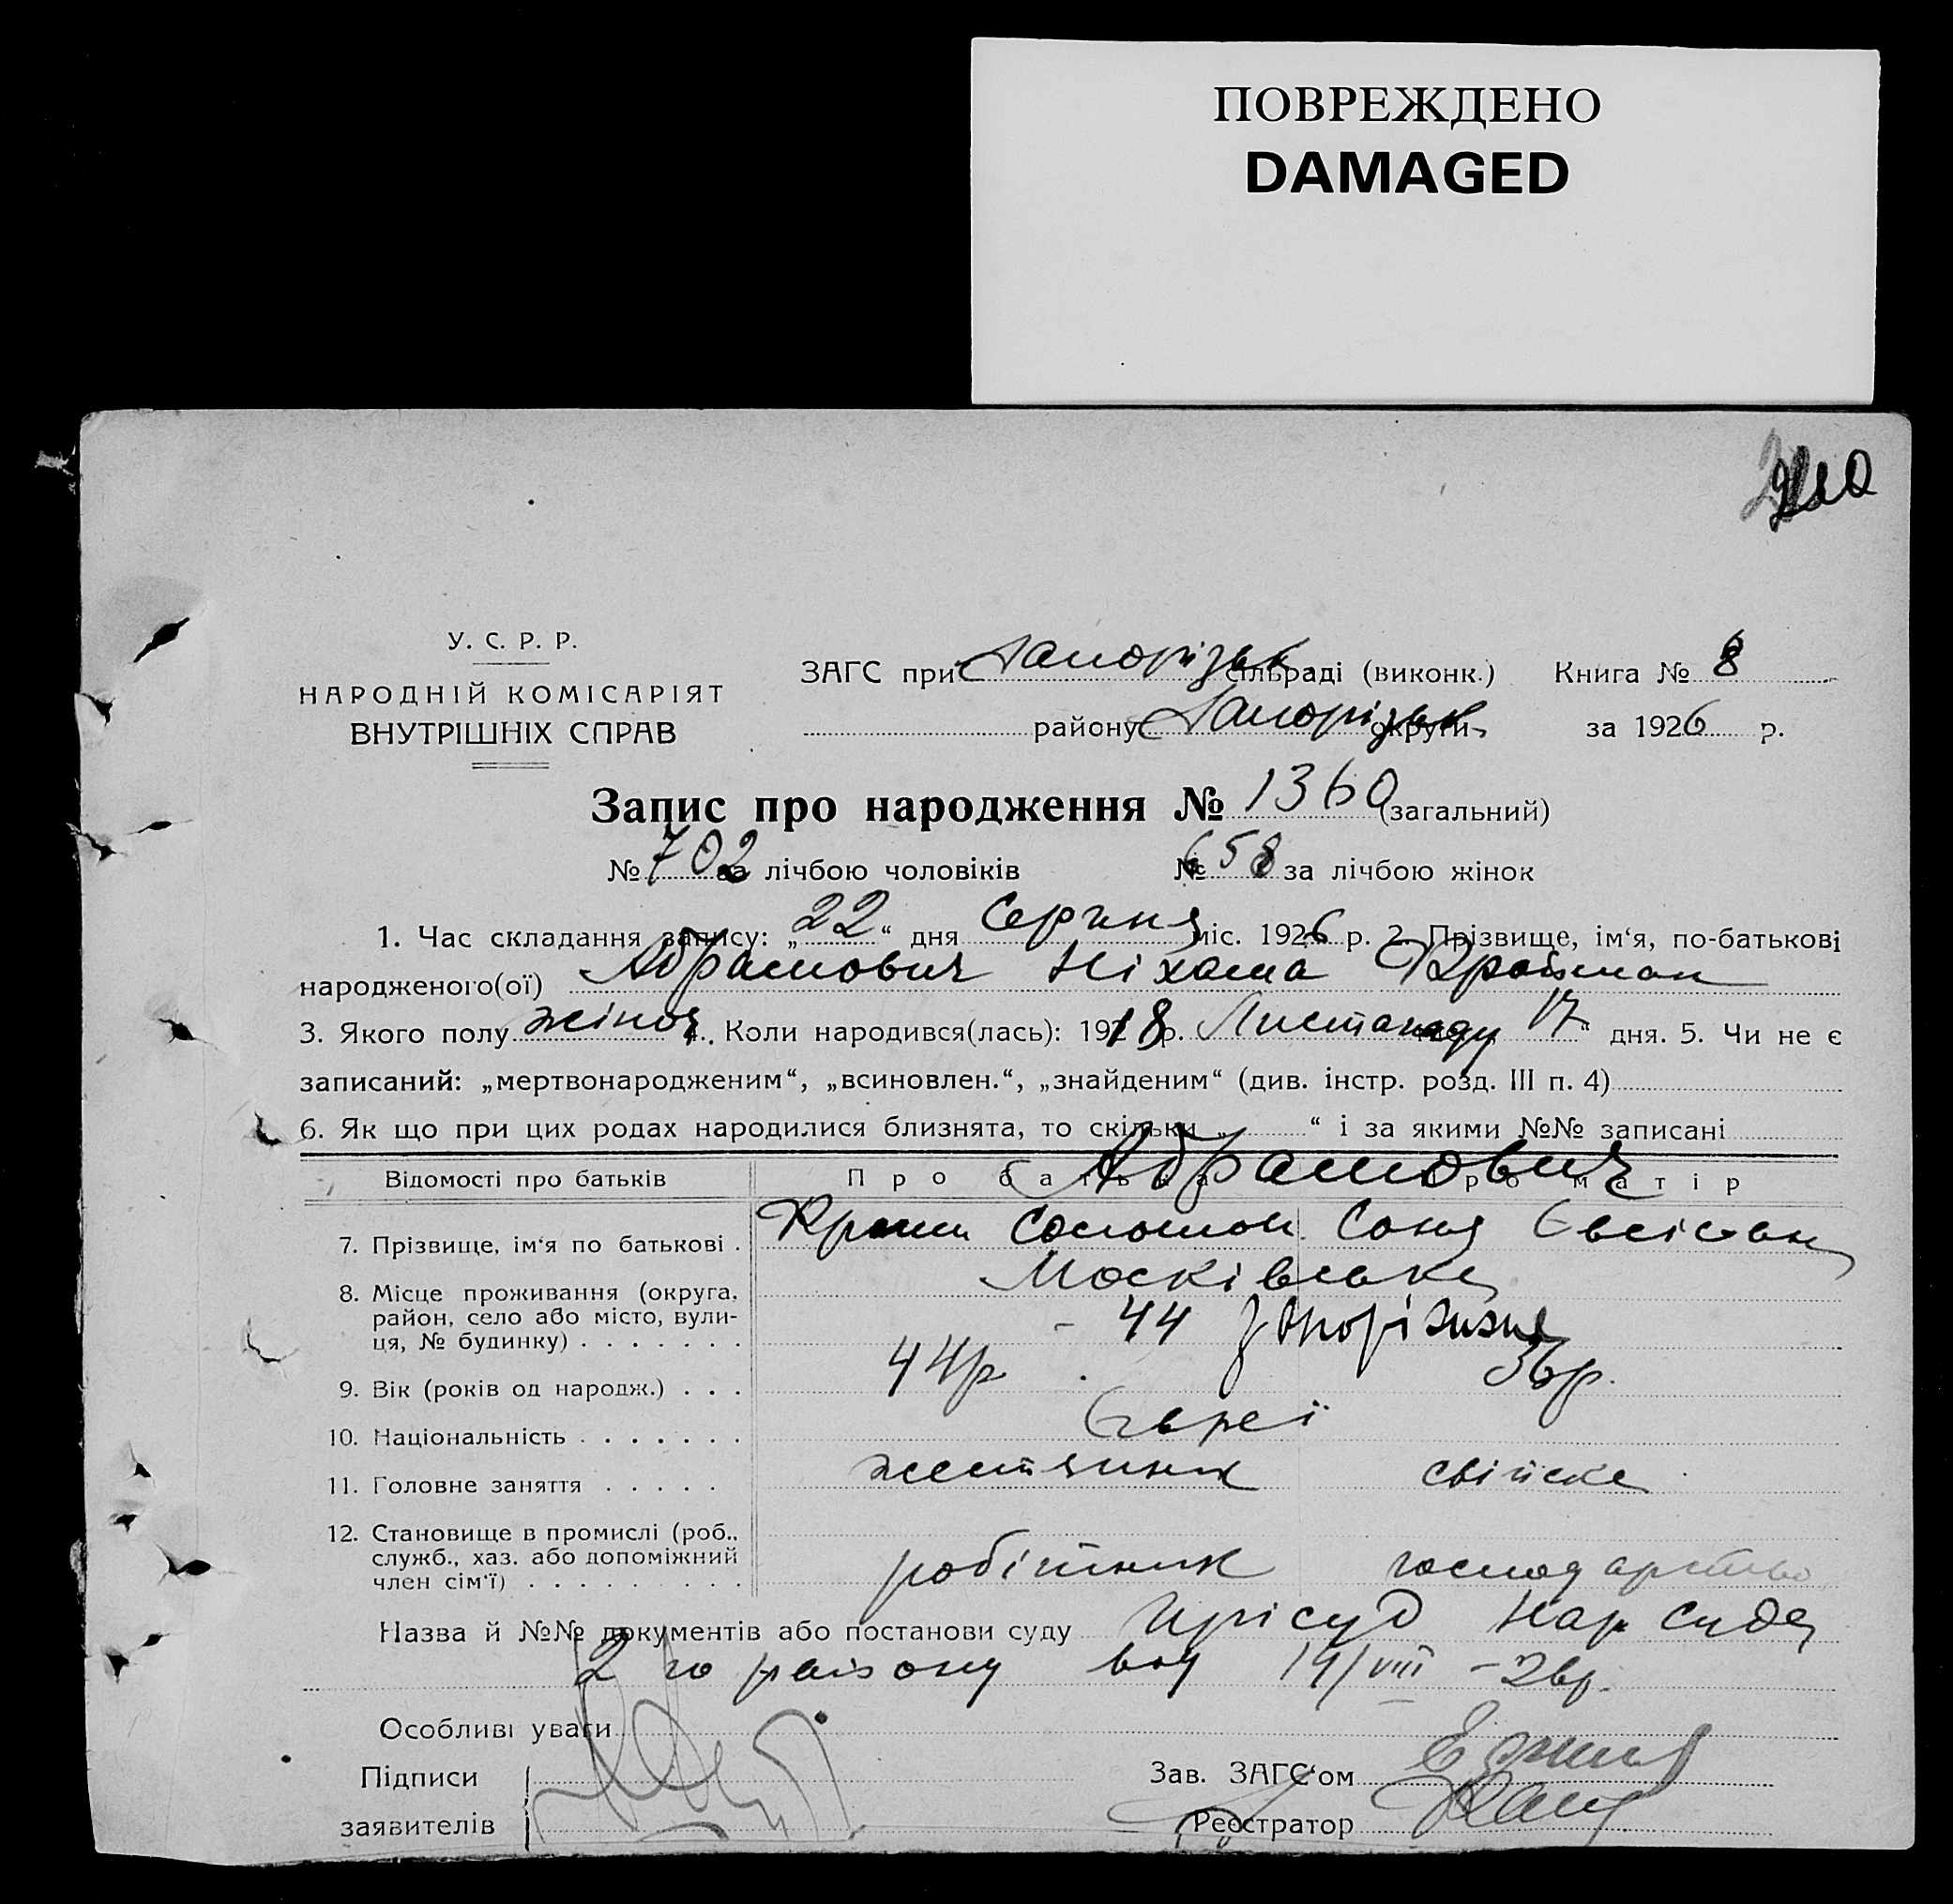 ПОВРЕЖДЕНО
DAMAGED
У. С. Р. Р.
НАРОДНІЙ КОМІСАРІЯТ
ВНУТРІШНІХ СПРАВ
ЗАГС при Запорізьк сільраді (виконк.) Книга № 8
району Запорізьк округи за 1926 р.
Запис про народження № 1360 (загальний)
№ 702 за лічбою чоловіків № 658 за лічбою жінок
1. Час складання запису: „22“ дня Серпня міс. 1926 р. 2. Прізвище, ім‘я, по-батькові
народженого(ої) Абрамович Ніхама
3. Якого полу жіноч 4. Коли народився(лась): 1918 р. Листападу 17“ дня. 5. Чи не є
записаний: „мертвонародженим“, „всиновлен.“, „знайденим“ (див. інстр. розд. III п. 4)
6. Як що при цих родах народилися близнята, то скільки „ “ і за якими №№ записані
Відомості про батьків Про батька Про матір
Абрамович
7. Прізвище, ім‘я по батькові . Соломон Соня
8. Місце проживання (округа, район, село або місто, вулиця, № будинку) . . . . . . . Московська
- 44 Запоріжжя
9. Вік (років од народж.) . . . 44р 36р.
10. Національність . . . . . . . Євреї
11. Головне заняття . . . . . жестяник свійске
12. Становище в промислі (роб., служб., хаз. або допоміжний член сім‘ї) . . . . . . . . . робітник господарство
Назва й №№ документів або постанови суду Присуд Нар Суда
2 го району від 19/VIII - 26р.
Особливі уваги
Підписи
заявителів
Зав. ЗАГС‘ом
Реєстратор